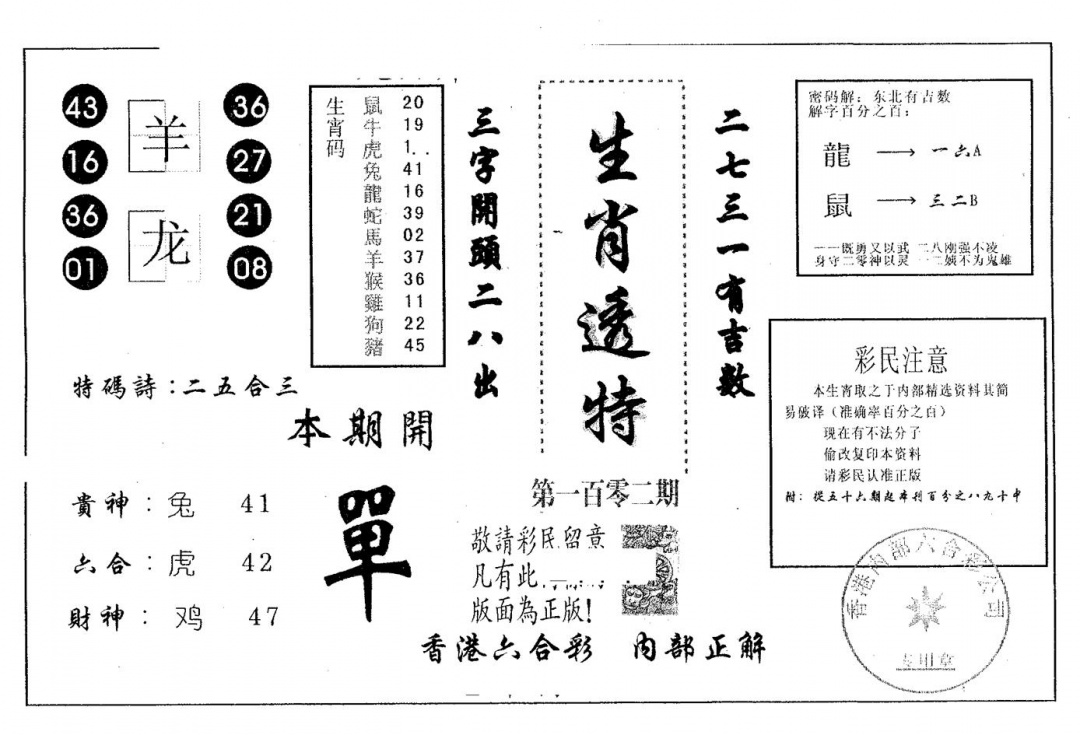 43
羊
36
16
27
36
龙
21
01
08
特碼詩：二五合三
本期開
單
貴神：兔 41
六合：虎 42
財神：鸡 47
生宵码
鼠 20
牛 19
虎 1
兔 41
龍 16
蛇 39
馬 02
羊 37
猴 36
雞 11
狗 22
豬 45
三字開頭二八出
生肖透特
二七三一有吉数
第一百零二期
敬請彩民留意
凡有此
版面為正版!
香港六合彩 内部正解
密码解：东北有吉数
解字百分之百：
龍 → 一六A
鼠 → 三二B
一一既勇又以武 二八刚强不凌
身守二零神以灵 一二魂不为鬼雄
彩民注意
本生宵取之于内部精选资料其简
易破译（准确率百分之百）
现在有不法分子
偷改复印本资料
请彩民认准正版
附：從五十六期起本刊百分之八九十中
香港内部六合彩公司
专用章